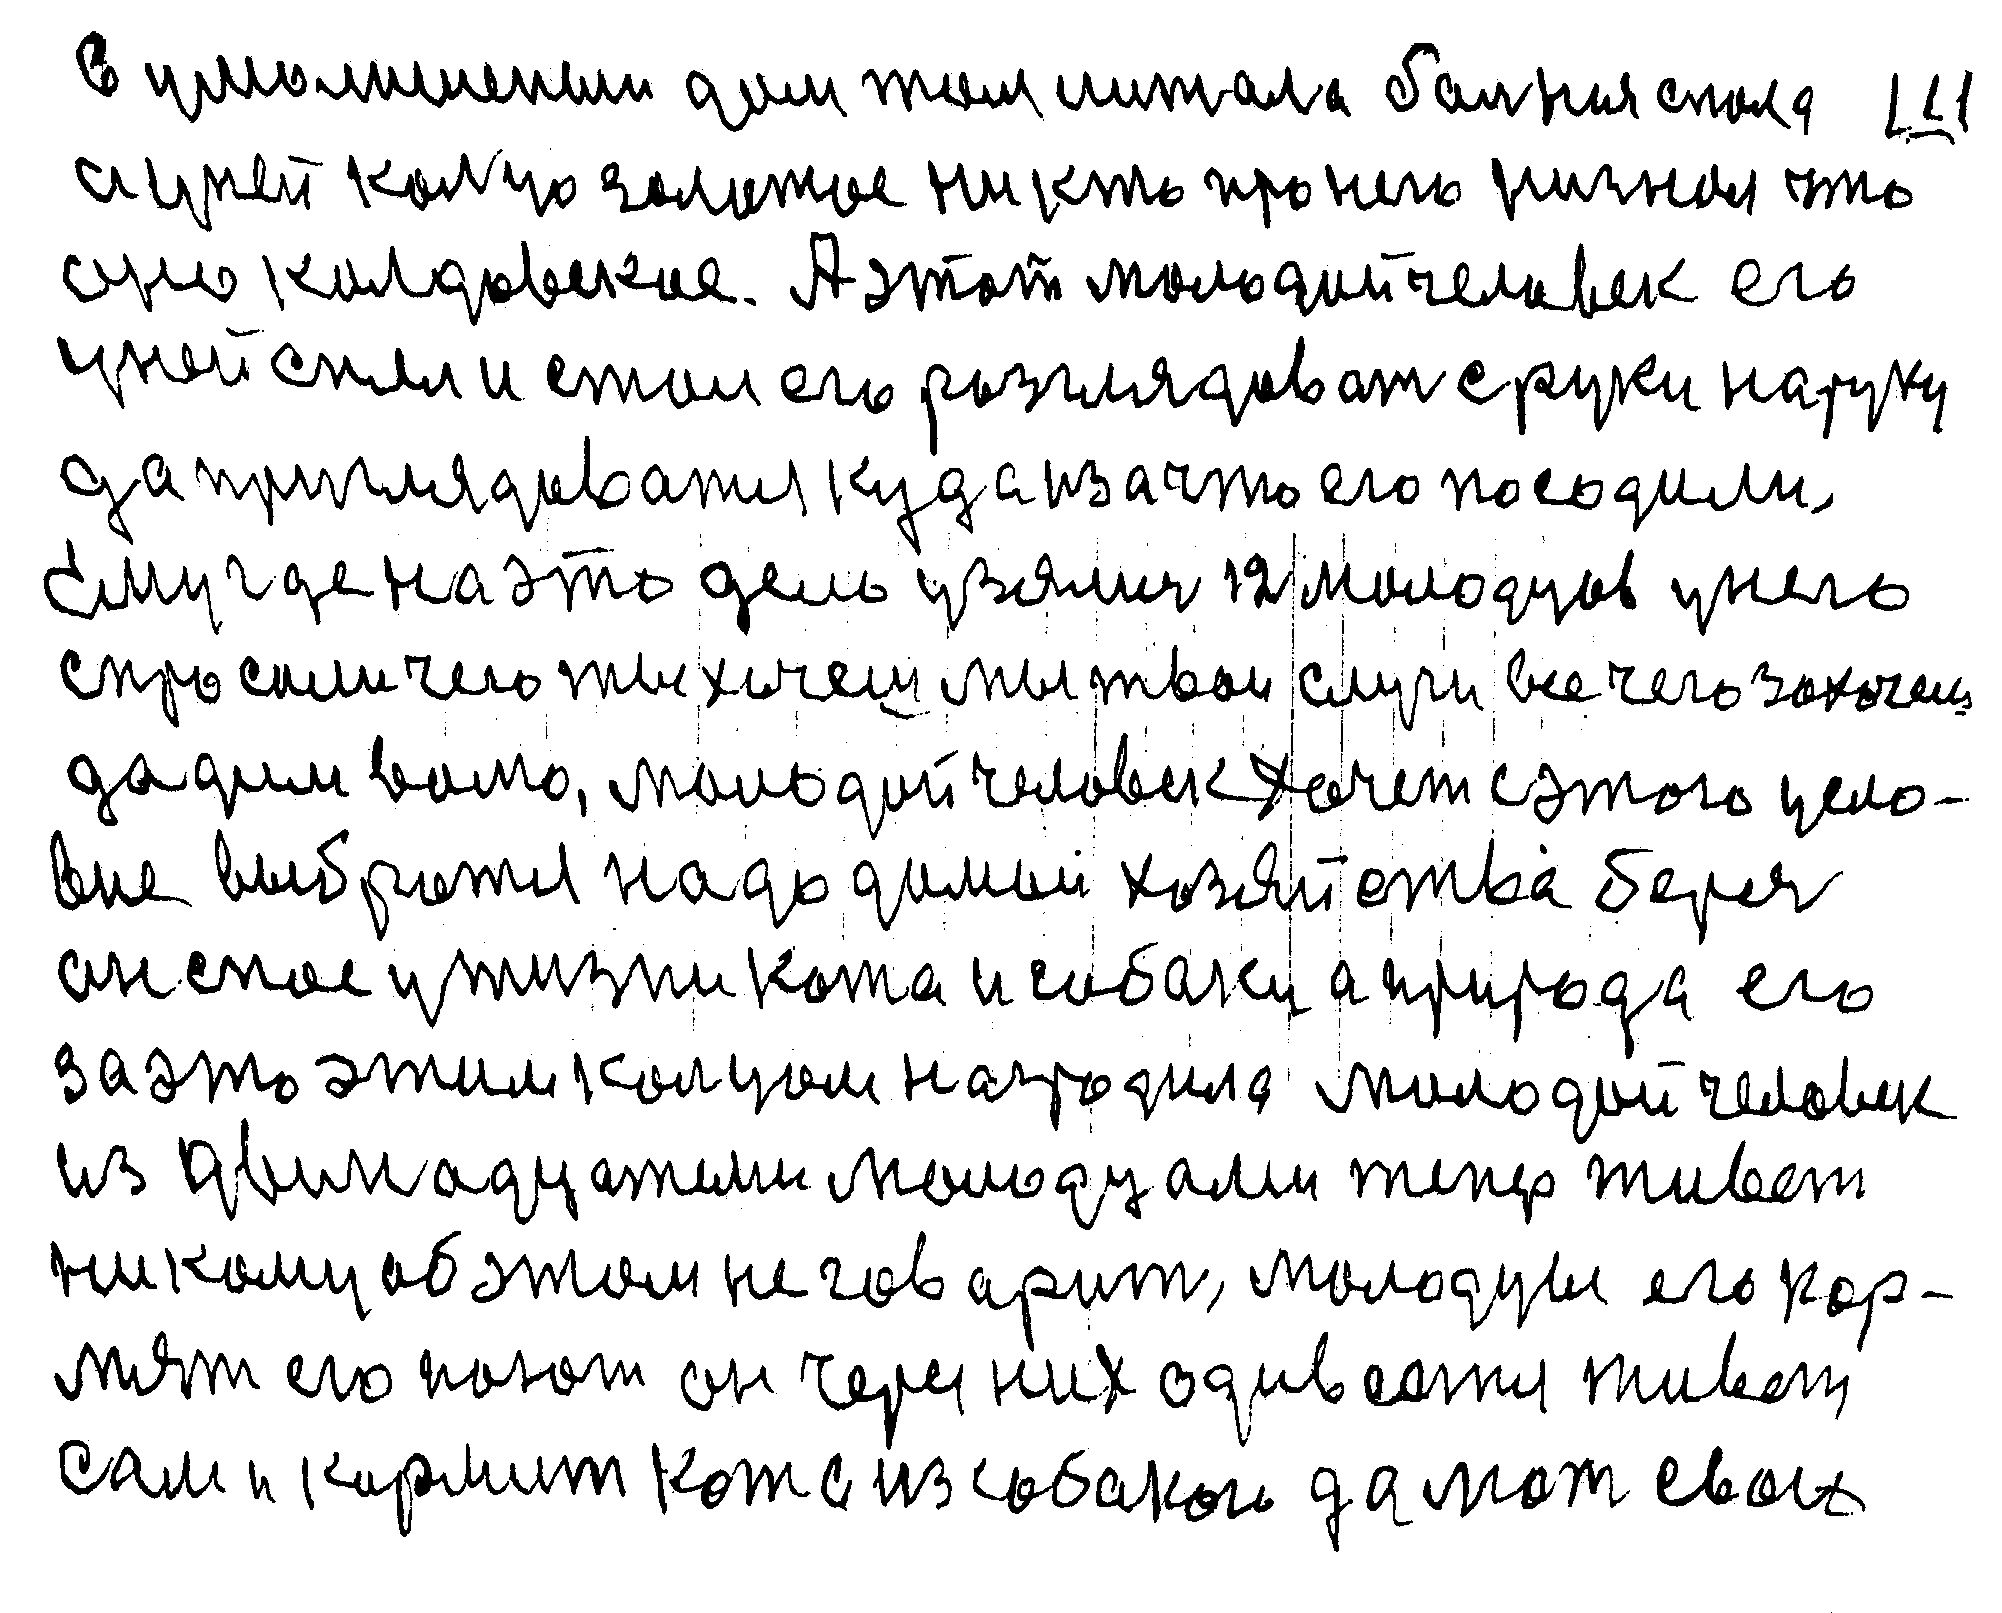 в умолишеным дом том шитала болния спала
а у ней колцо золотое никто про него ни знол что
оно колдовское. А этот молодой человек его
у ней снял и стол его розглядоват с руки на руку
да приглядоватся куда и за что его посодили,
Ему где на это дело узялися 12 молодцов у него
спросили чего ты хочеш мы твои слуги все чего зохочеш
дадим вомо, молодой человек хочет с этого чело-
вие выбротся надо домой хозяйства беречя
он спос у жизни кота и собаку а природа его
за это этим колцом нагродила молодой человек
из двинадцатеми молодцами тепер живет
никому об этом не говорит, молодцы его кор-
мят его поют он черес них одивается живет
сам и кормит кота из собакою да мат своих